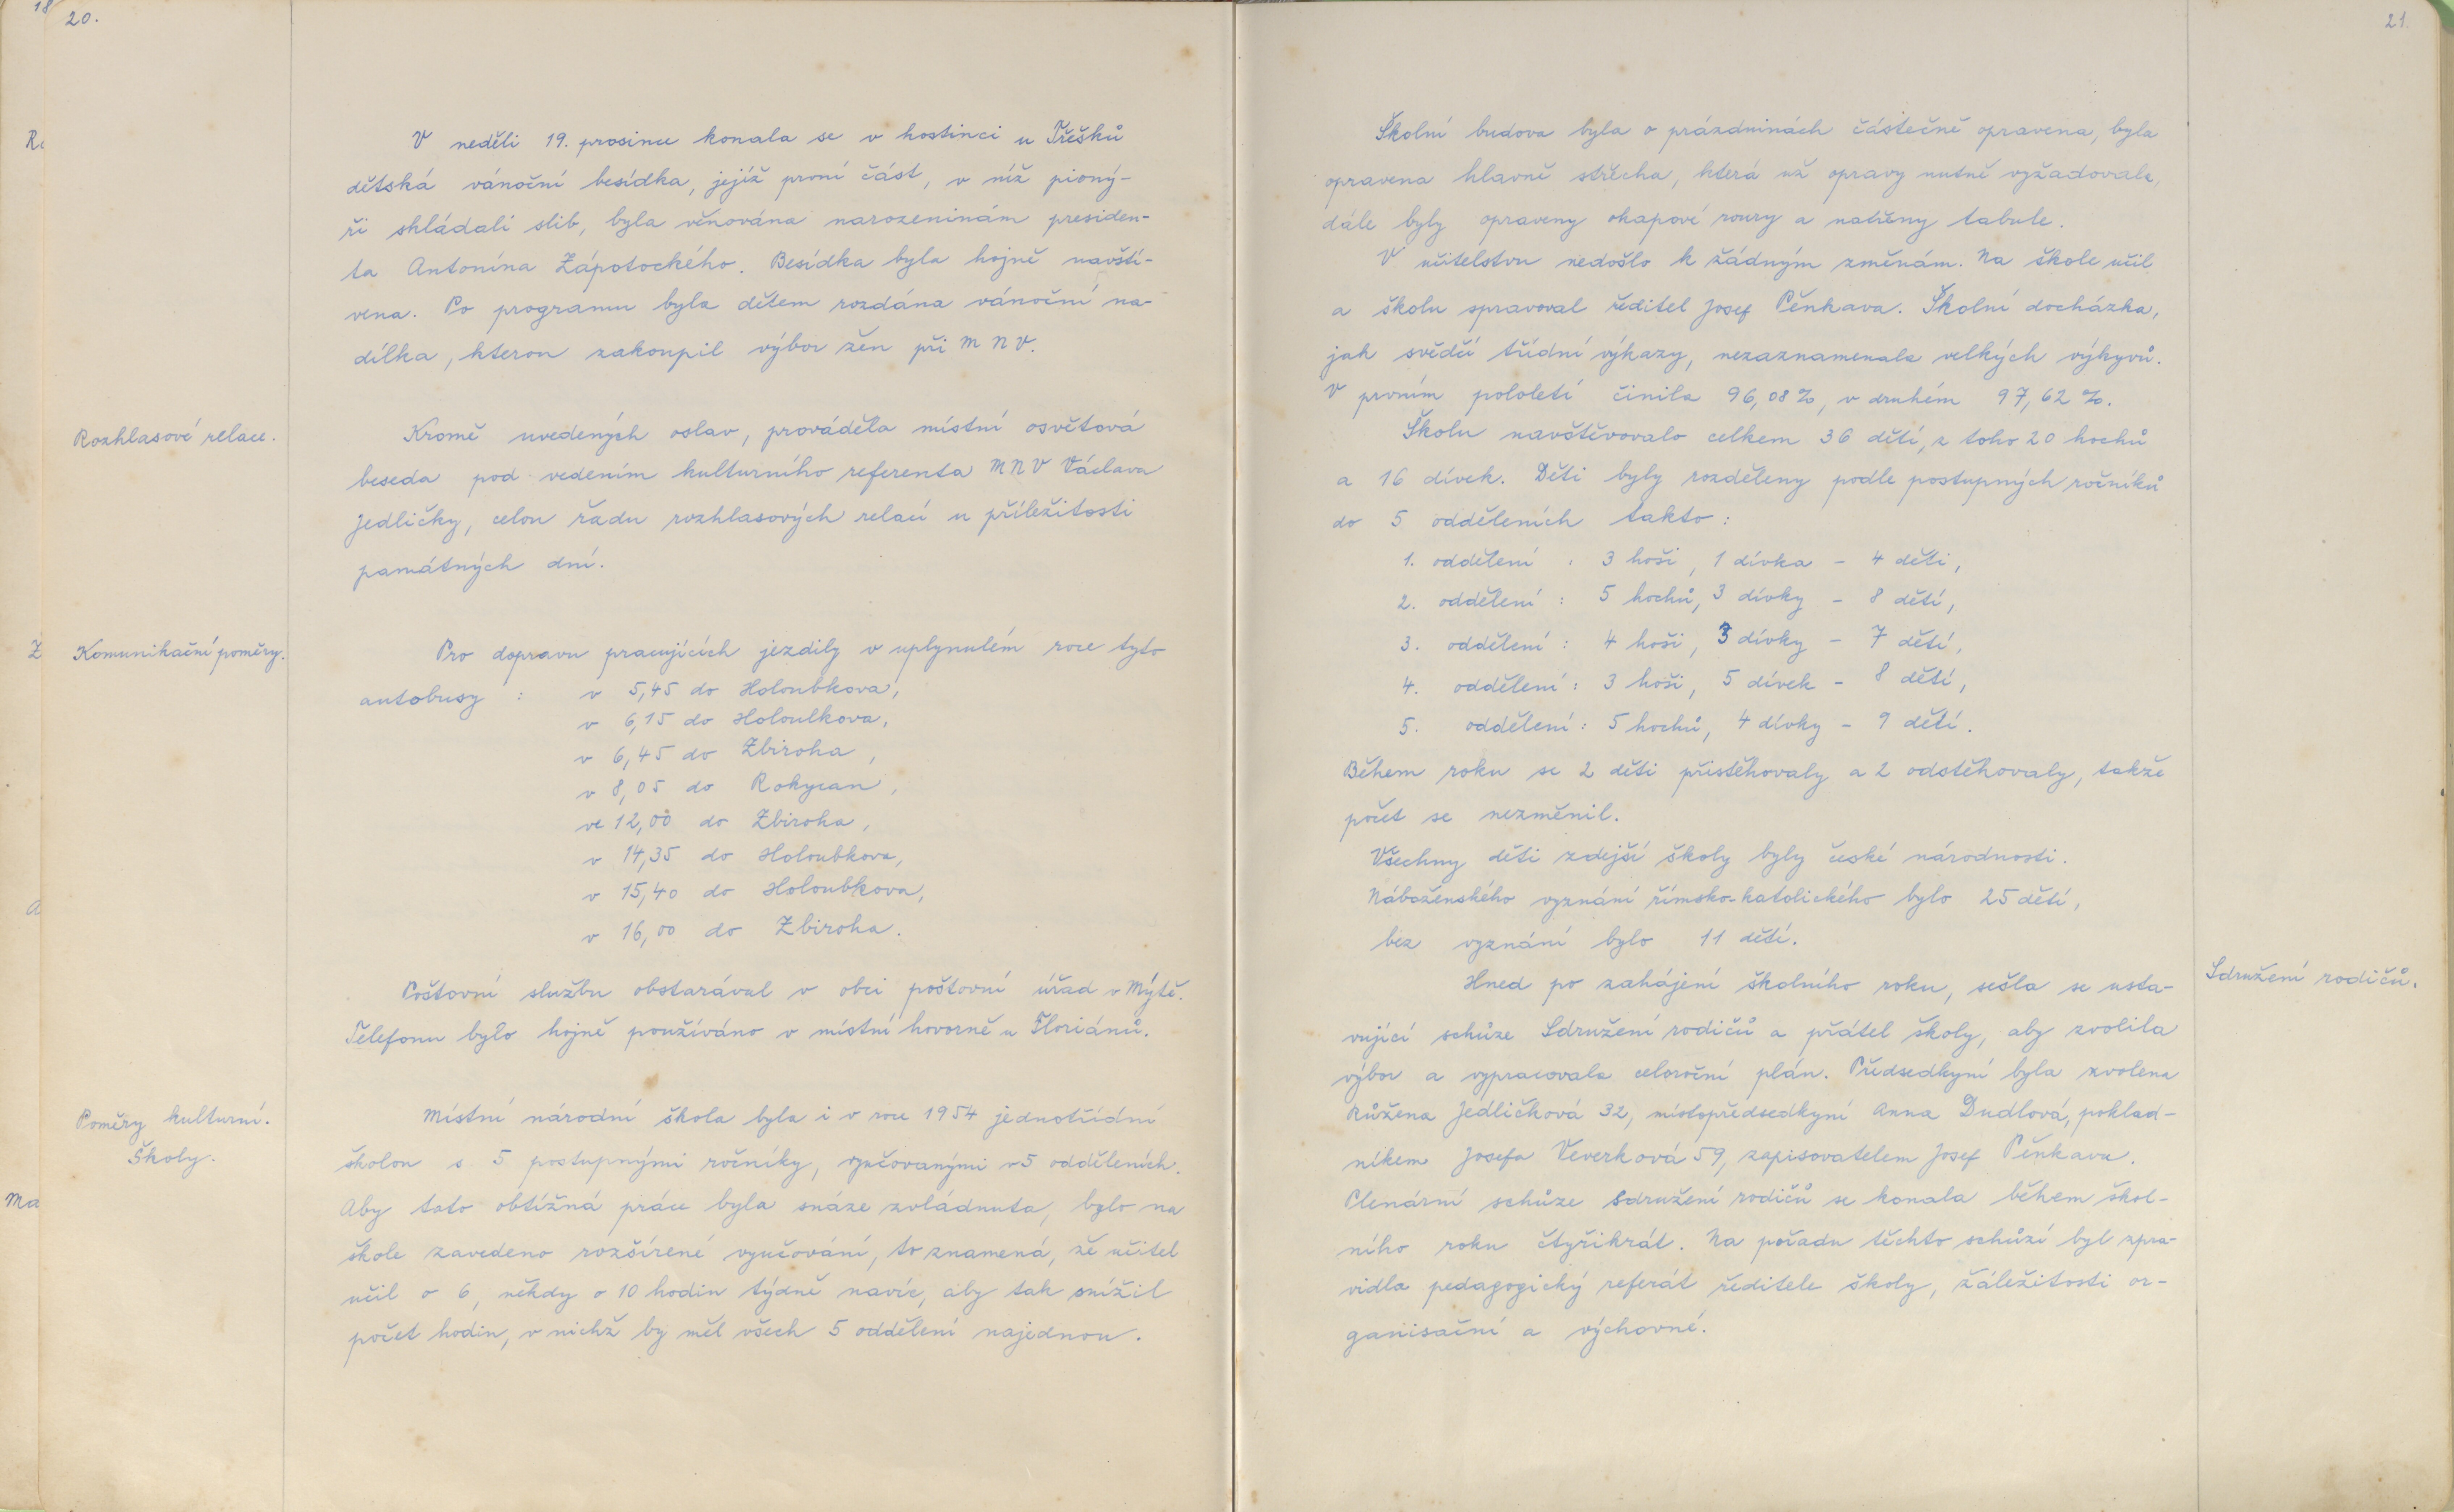 20.
V neděli 19. prosince konala se v hostinci u Třešků
dětská vánoční besídka, jejíž první část, v níž pioný-
ři skládali slib, byla věnována narozeninám presiden-
ta Antonína Zápotockého. Besídka byla hojně navští-
vena. Po programu byla dětem rozdána vánoční na-
dílka, kterou zakoupil výbor žen při MNV.
Rozhlasové relace.
Kromě uvedených oslav, prováděla místní osvětová
beseda pod vedením kulturního referenta MNV Václava
Jedličky, celou řadu rozhlasových relací u příležitosti
památných dní.
Komunikační poměry.
Pro dopravu pracujících jezdily v uplynulém roce tyto
autobusy : v 5,45 do Holoubkova,
v 6,15 do Holoulkova,
v 6,45 do Zbiroha,
v 8,05 do Rokycan,
ve 12,00 do Zbiroha,
v 14,35 do Holoubkova,
v 15,40 do Holoubkova,
v 16,00 do Zbiroha.
Poštovní službu obstarával v obci poštovní úřad v Mýtě.
Telefonu bylo hojně používáno v místní hovorně u Floriánů.
Poměry kulturní.
Školy.
Místní národní škola byla i v roce 1954 jednotřídní
školou s 5 postupnými ročníky, vyučovanými v 5 odděleních.
Aby tato obtížná práce byla snáze zvládnuta, bylo na
škole zavedeno rozšírené vyučování, to znamená, že učitel
učil o 6, někdy o 10 hodin týdně navíc, aby tak snížil
počet hodin, v nichž by měl všech 5 oddělení najednou.
21.
Školní budova byla o prázdninách částečně opravena, byla
opravena hlavně střecha, která už opravy nutně vyžadovala,
dále byly opraveny okapové roury a natřeny tabule.
V učitelstvu nedošlo k žádným změnám. Na škole učil
a školu spravoval ředitel Josef Pěnkava. Školní docházka,
jak svědčí třídní výkazy, nezaznamenala velkých výkyvů.
V prvním pololetí činila 96,08%, v druhém 97,62 %.
Školu navštěvovalo celkem 36 dětí, z toho 20 hochů
a 16 dívek. Děti byly rozděleny podle postupných ročníků
do 5 odděleních takto :
1. oddělení : 3 hoši, 1 dívka - 4 děti,
2. oddělení : 5 hochů, 3 dívky - 8 dětí,
3. oddělení : 4 hoši, 3 dívky - 7 dětí,
4. oddělení : 3 hoši, 5 dívek - 8 dětí,
5. oddělení : 5 hochů, 4 dívky - 9 dětí.
Během roku se 2 děti přistěhovaly a 2 odstěhovaly, takže
počet se nezměnil.
Všechny děti zdejší školy byly české národnosti.
Náboženského vyznání římsko-katolického bylo 25 dětí,
bez vyznání bylo 11 dětí.
Sdružení rodičů.
Hned po zahájení školního roku, sešla se usta-
vující schůze Sdružení rodičů a přátel školy, aby zvolila
výbor a vypracovala celoroční plán. Předsedkyní byla zvolena
Růžena Jedličková 32, místopředsedkyní Anna Dudlová, poklad-
níkem Josefa Veverková 59, zapisovatelem Josef Pěnkava.
Plenární schůze sdružení rodičů se konala během škol-
ního roku čtyřikrát. Na pořadu těchto schůzí byl zpra-
vidla pedagogický referát ředitele školy, záležitosti or-
ganisační a výchovné.